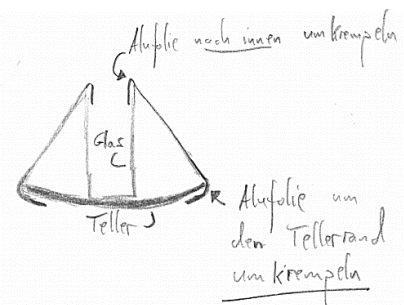 Alufolie nach innen umkrempeln
Glas
Teller
Alufolie um
den Tellerrand
umkrempeln